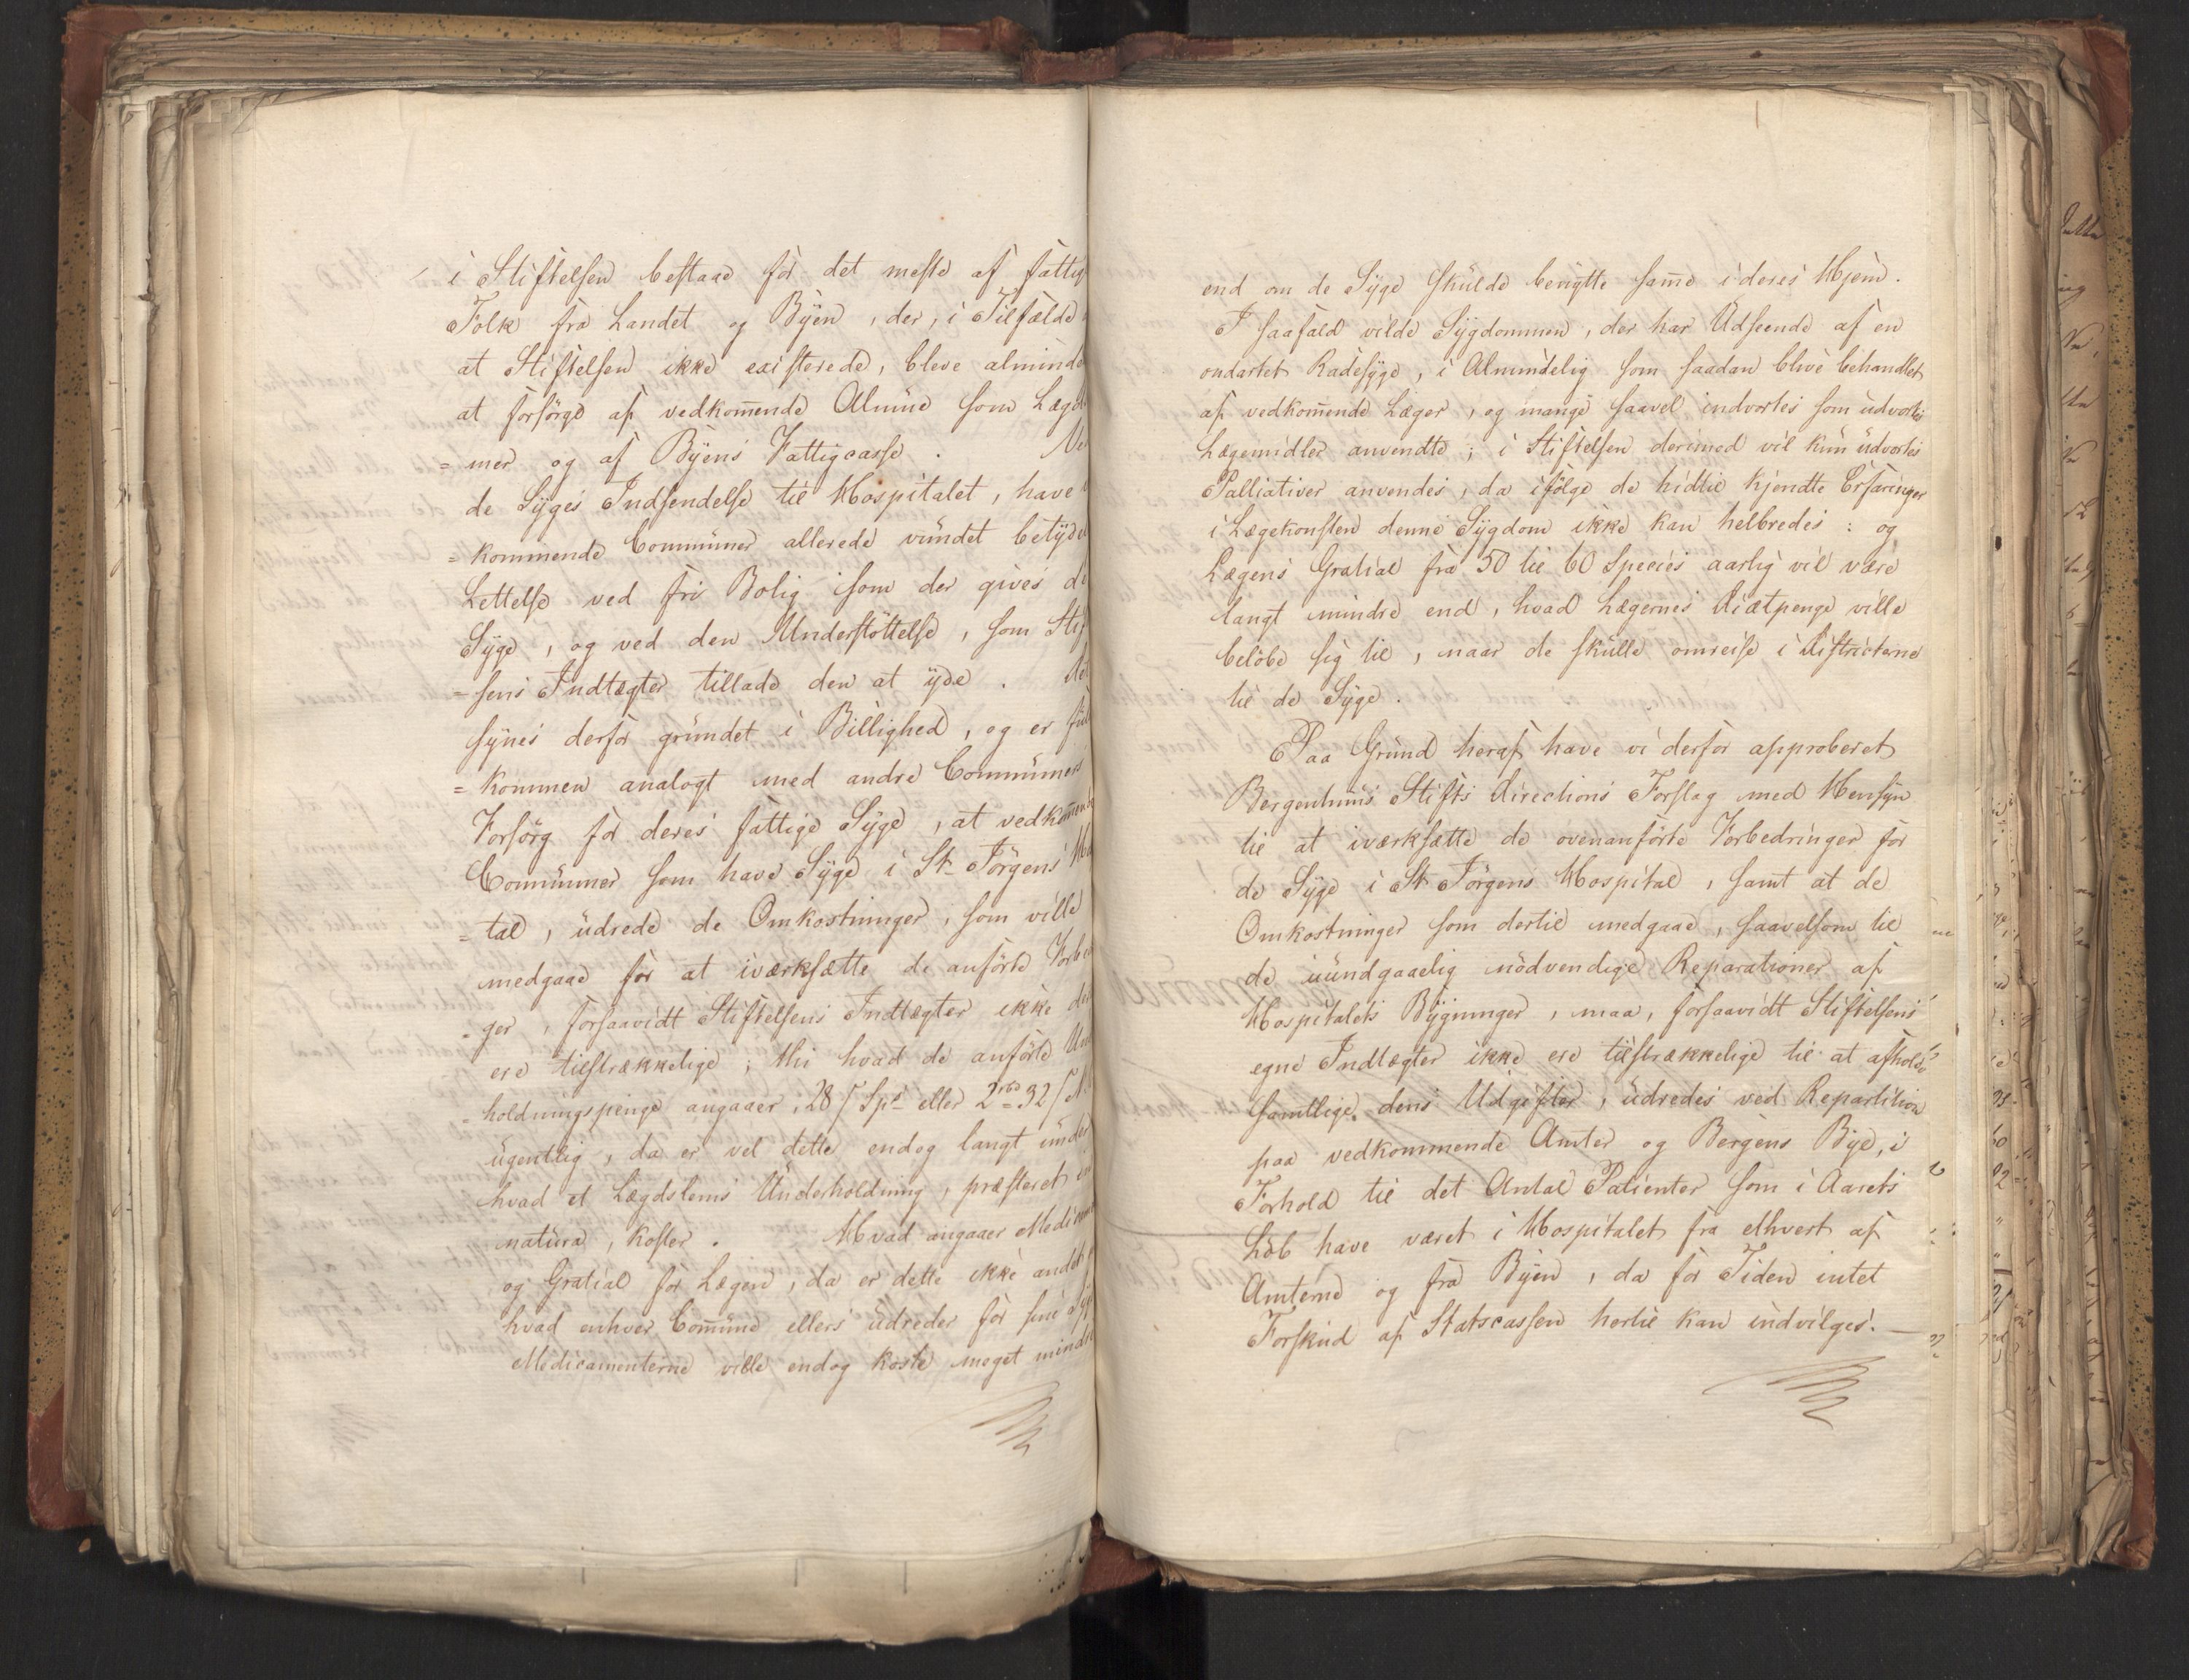 i Stiftelsen bestaae for det meste af fattig
Folk fra Landet og Byen, der, i Tilfælde
at Stiftelsen ikke existerede, bleve alminde
at forsörge af vedkom̅ende Almue som Lægds
= mer og af Byens Fattigcasse. Ve
de Syges Indsendelse til Hospitalet, have
= kommende Communer allerede vundet betyde
Lettelse ved fri Bolig som der gives de
Syge, og ved den Understöttelse, som Stif
= sens Indtægter tillade den at yde. Det
synes derfor grundet i Billighed, og er ful
= kommen analogt med andre Communers
Forsörg for deres fattige Syge, at vedkom̅ende
Communer som have Syge i St. Jörgens Hos
= tal, udrede de Omkostninger, som ville
medgaae for at iværksætte de anförte Forbed
= ger, forsaavidt Stiftelsens Indtægter ikke der
ere tilstrækkelige; thi hvad de anförte Und
= holdningspenge angaaer, 28 ſ Sps eller 2 rbd 32 ſ N
ugentlig, da er vel dette endog langt under
hvad et Lægdslems Underholdning, præsteret in
natura, koster. Hvad angaaer Medicam
og Gratial for Lægen, da er dette ikke andet
hvad enhver Com̅une ellers udreder for sine Syge
Medicamenterne ville endog koste meget mindre
end om de Syge skulde benytte sam̅e i deres Hjem.
I saafald vilde Sygdommen, der har Udseende af en
ondartet Radesyge, i Almindelig som saadan blive behandlet
af vedkom̅ende Læger, og mange saavel indvortes som udvortes
Lægemidler anvendte; i Stiftelsen derimod vil kun udvortes
Palliativer anvendes, da ifölge de hidtil kjendte Erfaringer
i Lægekonsten denne Sygdom ikke kan helbredes: og
Lægens Gratial fra 50 til 60 Species aarlig vil være
langt mindre end, hvad Lægernes Diætpenge ville
belöbe sig til, naar de skulle omreise i Districterne
til de Syge.
Paa Grund heraf have vi derfor approberet
Bergenhuus Stifts Directions Forslag med Hensyn
til at iværksætte de ovenanförte Forbedringer for
de Syge i St. Jörgens Hospital, samt at de
Omkostninger som dertil medgaae, saavelsom til
de uundgaaelig nödvendige Reparationer af
Hospitalets Bygninger, maa, forsaavidt Stiftelsens
egne Indtægter ikke ere tilstrækkelige til at afholde
samtlige dens Udgifter, udredes ved Repartition
paa vedkommende Amter og Bergens Bye, i
Forhold til det Antal Patienter som i Aarets
Löb have været i Hospitalet fra ethvert af
Amterne og fra Byen, da for Tiden intet
Forskud af Statscassen hertil kan indvilges. —